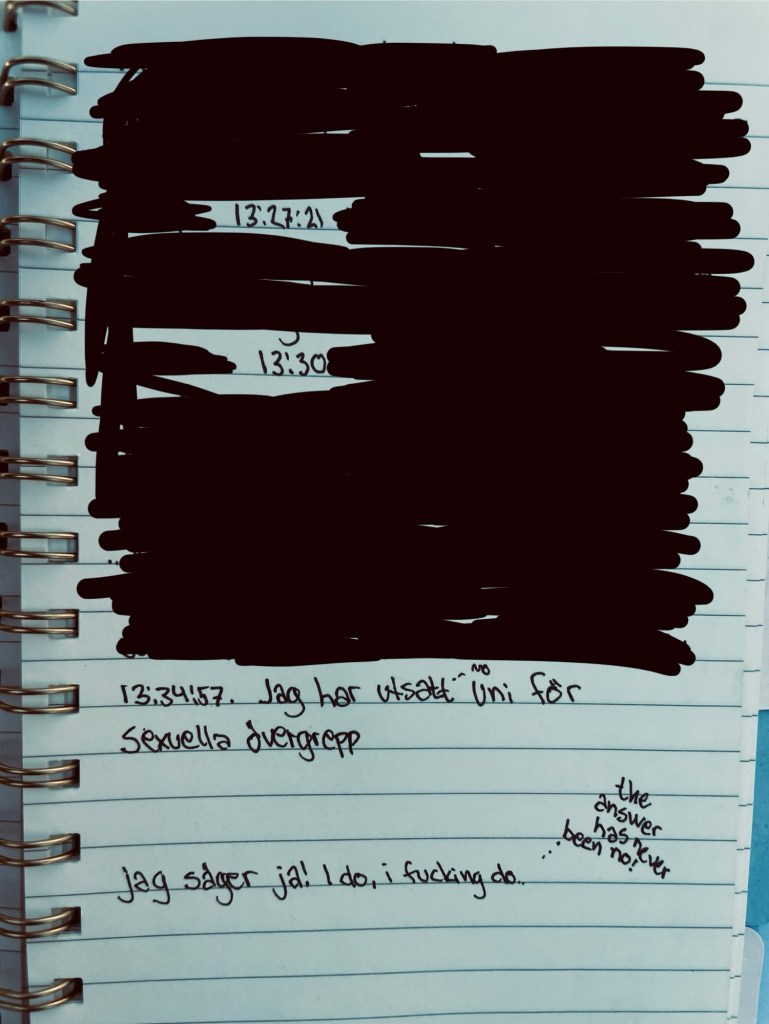 13:27:21
13:30
13:34:57. Jag har utsatt Uni för
Sexuella övergrepp
the
answer
has never
been no!
...
Jag säger ja! I do, i fucking do..